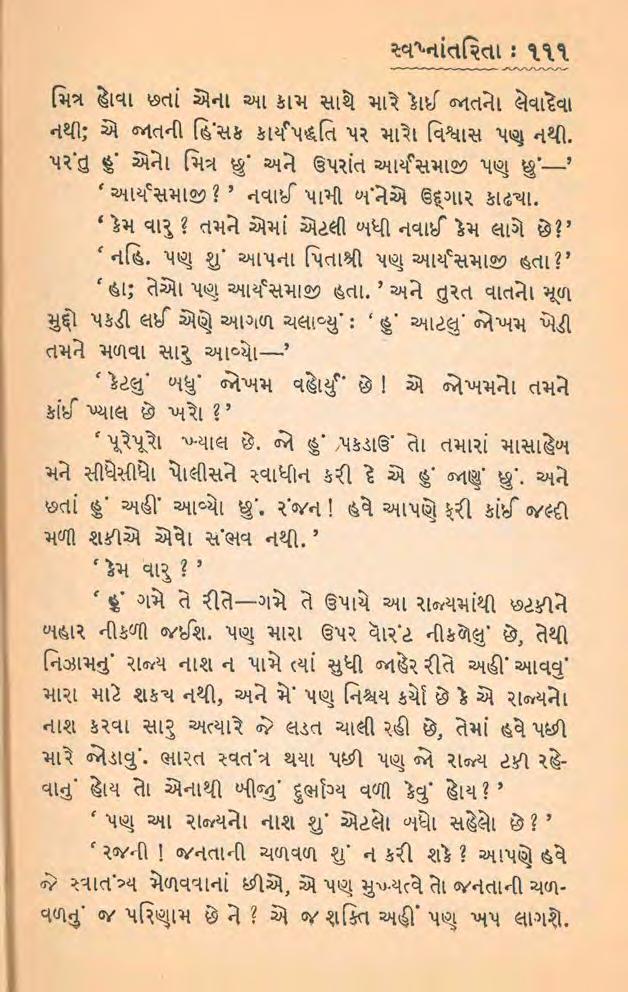 સ્વપ્નાંતરિતા : ૧૧૧
મિત્ર હોવા છતાં એના આ કામ સાથે મારે કોઈ જાતનો લેવાદેવા
નથી; એ જાતની હિંસક કાર્યપદ્ધતિ પર મારો વિશ્વાસ પણ નથી.
પરંતુ હું એનો મિત્ર છું અને ઉપરાંત આર્યસમાજી પણ છું—’
‘ આર્યસમાજી ? ’ નવાઈ પામી બંનેએ ઉદ્ગાર કાઢ્યા.
‘ કેમ વારુ ? તમને એમાં એટલી બધી નવાઈ કેમ લાગે છે?’
‘ નહિ. પણ શું આપના પિતાશ્રી પણ આર્યસમાજી હતા?’
‘ હા; તેઓ પણ આર્યસમાજી હતા. ’ અને તુરત વાતનો મૂળ
મુદ્દો પકડી લઈ એણે આગળ ચલાવ્યું : ‘ હું આટલું જોખમ ખેડી
તમને મળવા સારુ આવ્યો—’
‘ કેટલું બધું જોખમ વહોર્યું છે ! એ જોખમનો તમને
કાંઈ ખ્યાલ છે ખરો ? ’
‘ પૂરેપૂરો ખ્યાલ છે. જો હું પકડાઉં તો તમારાં માસાહેબ
મને સીધેસીધો પોલીસને સ્વાધીન કરી દે એ હું જાણું છું. અને
છતાં હું અહીં આવ્યો છું. રંજન ! હવે આપણે ફરી કાંઈ જલ્દી
મળી શકીએ એવો સંભવ નથી. ’
‘ કેમ વારુ ? ’
‘ હું ગમે તે રીતે—ગમે તે ઉપાયે આ રાજ્યમાંથી છટકીને
બહાર નીકળી જઈશ. પણ મારા ઉપર વૉરંટ નીકળેલું છે, તેથી
નિઝામનું રાજ્ય નાશ ન પામે ત્યાં સુધી જાહેર રીતે અહીં આવવું
મારા માટે શક્ય નથી, અને મેં પણ નિશ્ચય કર્યો છે કે એ રાજ્યનો
નાશ કરવા સારુ અત્યારે જે લડત ચાલી રહી છે, તેમાં હવે પછી
મારે જોડાવું. ભારત સ્વતંત્ર થયા પછી પણ જો રાજ્ય ટકી રહે-
વાનું હોય તો એનાથી બીજું દુર્ભાગ્ય વળી કેવું હોય ? ’
‘ પણ આ રાજ્યનો નાશ શું એટલો બધો સહેલો છે ? ’
‘ રજની ! જનતાની ચળવળ શું ન કરી શકે ? આપણે હવે
જે સ્વાતંત્ર્ય મેળવવાનાં છીએ, એ પણ મુખ્યત્વે તો જનતાની ચળ-
વળનું જ પરિણામ છે ને ? એ જ શક્તિ અહીં પણ ખપ લાગશે.